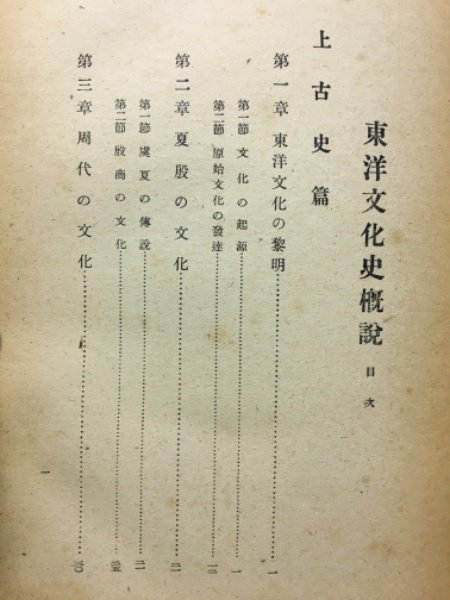 東洋文化史概說 目次
上古史篇
第一章 東洋文化の黎明……一
第一節 文化の起源……一
第二節 原始文化の發達……
第二章 夏殷の文化……
第一節 虞夏の傳說……
第二節 殷商の文化……
第三章 周代の文化……三〇
一